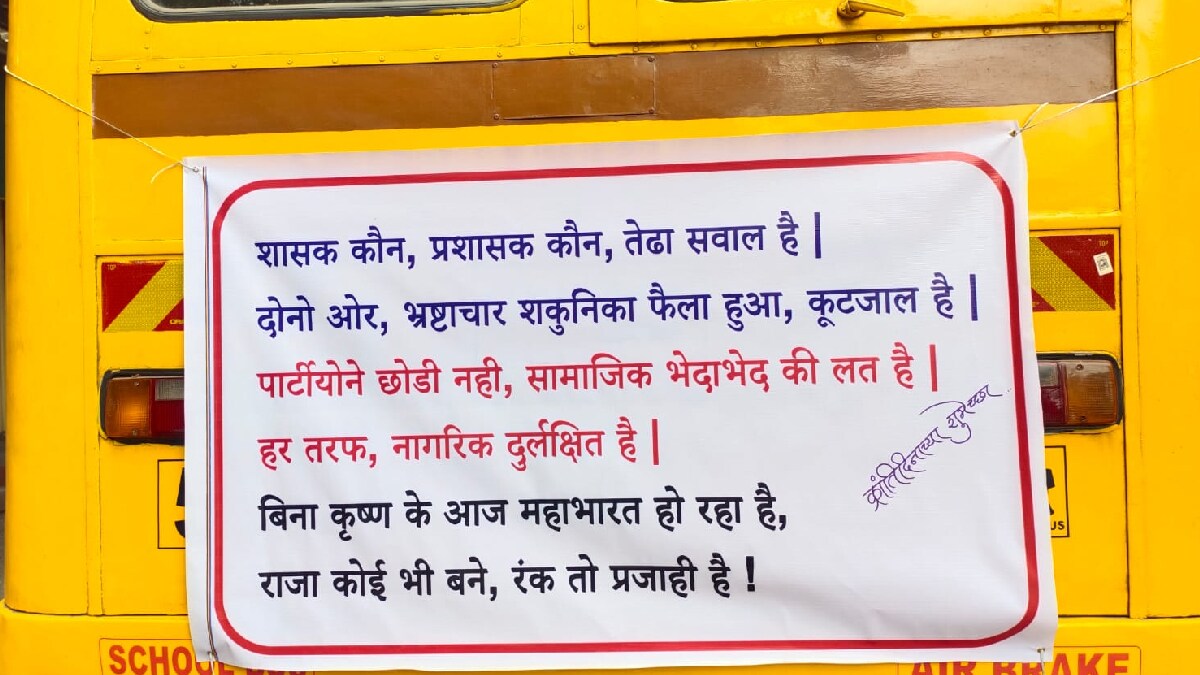 शासक कौन, प्रशासक कौन, तेढा सवाल है |
दोनो ओर, भ्रष्टाचार शकुनिका फैला हुआ, कूटजाल है |
पार्टीयोने छोडी नही, सामाजिक भेदाभेद की लत है |
हर तरफ, नागरिक दुर्लक्षित है |
क्रांतिदिनाच्या शुभेच्छा
बिना कृष्ण के आज महाभारत हो रहा है,
राजा कोई भी बने, रंक तो प्रजाही है !
SCHOOL BUS
AIR BRAKE